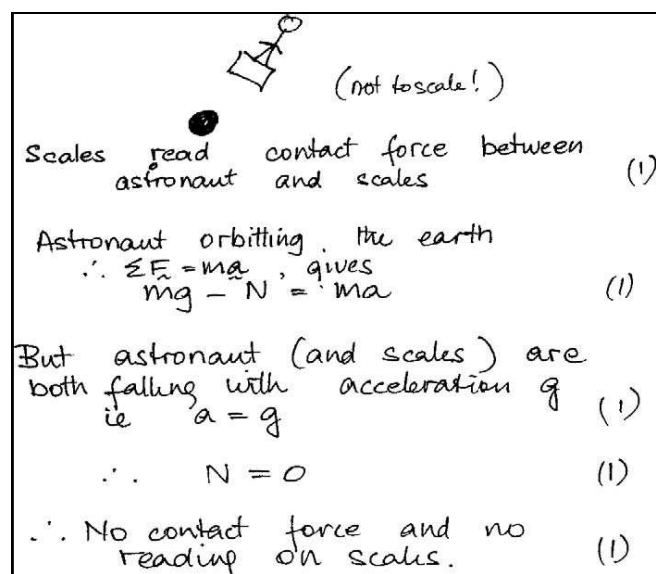 (not to scale!)
Scales read contact force between
astronaut and scales (1)
Astronaut orbitting the earth
∴ ΣF̰ = ma̰, gives
mg - N = ma (1)
But astronaut (and scales) are
both falling with acceleration g
ie a = g (1)
∴ N = 0 (1)
∴ No contact force and no
reading on scales. (1)